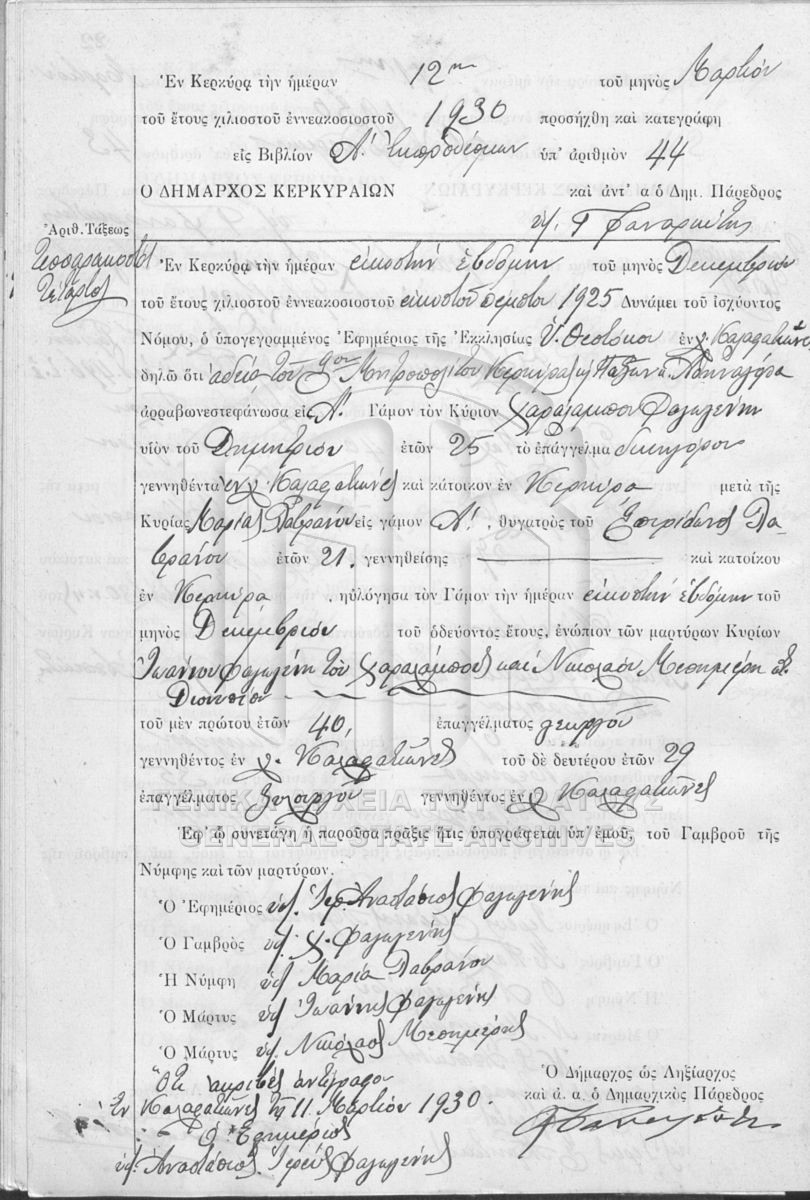 Ἐν Κερκύρᾳ τὴν ἡμέραν 12ην τοῦ μηνὸς Μαρτίου
τοῦ ἔτους χιλιοστοῦ ἐννεακοσιοστοῦ 1930 προσήχθη καὶ κατεγράφη
εἰς Βιβλίον Α. Ἐκπροθέσμων ὑπ' ἀριθμὸν 44
Ο ΔΗΜΑΡΧΟΣ ΚΕΡΚΥΡΑΙΩΝ καὶ ἀντ' α ὁ Δημ. Πάρεδρος
Ἀριθ. Τάξεως
Τεσσαρακοστὸς
Τέταρτος
Ἐν Κερκύρᾳ τὴν ἡμέραν εἰκοστὴν ἑβδόμην τοῦ μηνὸς Δεκεμβρίου
τοῦ ἔτους χιλιοστοῦ ἐννεακοσιοστοῦ εἰκοστοῦ πέμπτου 1925 Δυνάμει τοῦ ἰσχύοντος
Νόμου, ὁ ὑπογεγραμμένος Ἐφημέριος τῆς Ἐκκλησίας Ὑ. Θεοτόκου ἐν χ. Καλαφατιῶνες
δηλῶ ὅτι ἀδείᾳ τοῦ Μητροπολίτου Κερκύρας κ Παξῶν κ.
ἀρραβωνεστεφάνωσα εἰς Α. Γάμον τὸν Κύριον Χαράλαμπον Φαγογένην
υἱὸν τοῦ Δημητρίου ἐτῶν 25 τὸ ἐπάγγελμα δικηγόρου
γεννηθέντα ἐν χ. Καλαφατιῶνες καὶ κάτοικον ἐν Κερκύρᾳ μετὰ τῆς
Κυρίας Μαρίας Λαβράνου εἰς γάμον Α! , θυγατρὸς τοῦ Σπυρίδωνος Λα-
βράνου ἐτῶν 21. γεννηθείσης καὶ κατοίκου
ἐν Κερκύρᾳ , ηὐλόγησα τὸν Γάμον τὴν ἡμέραν εἰκοστὴν ἑβδόμην τοῦ
μηνὸς Δεκεμβρίου τοῦ ὁδεύοντος ἔτους, ἐνώπιον τῶν μαρτύρων Κυρίων
Ἰωάννου Φαγογένη τοῦ Χαραλάμπους καὶ Νικολάου Μεσημέρη
Διονυσίου
τοῦ μὲν πρώτου ἐτῶν 40, ἐπαγγέλματος γεωργοῦ
γεννηθέντος ἐν χ. Καλαφατιῶνες τοῦ δὲ δευτέρου ἐτῶν 29
ἐπαγγέλματος ξυλουργοῦ γεννηθέντος ἐν χ Καλαφατιῶνες
ΓΕΝΙΚΑ ΑΡΧΕΙΑ ΤΟΥ ΚΡΑΤΟΥΣ
Ἐφ' ᾧ συνετάγη ἡ παροῦσα πρᾶξις ἥτις ὑπογράφεται ὑπ' ἐμοῦ, τοῦ Γαμβροῦ τῆς
GENERAL STATE ARCHIVES
Νύμφης καὶ τῶν μαρτύρων.
Ὁ Ἐφημέριος ὑπ. Ἱερ. Ἀναστάσιος Φαγογένης
Ὁ Γαμβρὸς ὑπ. Χ. Φαγογένης
Ἡ Νύμφη ὑπ Μαρία Λαβράνου
Ὁ Μάρτυς ὑπ Ἰωάννης Φαγογένης
Ὁ Μάρτυς ὑπ. Νικόλαος Μεσημέρης
Ὁ Δήμαρχος ὡς Ληξίαρχος
καὶ ἀ. α. ὁ Δημαρχικὸς Πάρεδρος
Ὅτι ἀκριβὲς ἀντίγραφον
Ἐν Καλαφατιῶνες τῇ 11 Μαρτίου 1930.
Ὁ Ἐφημέριος
ὑπ. Ἀναστάσιος Ἱερεὺς Φαγογένης